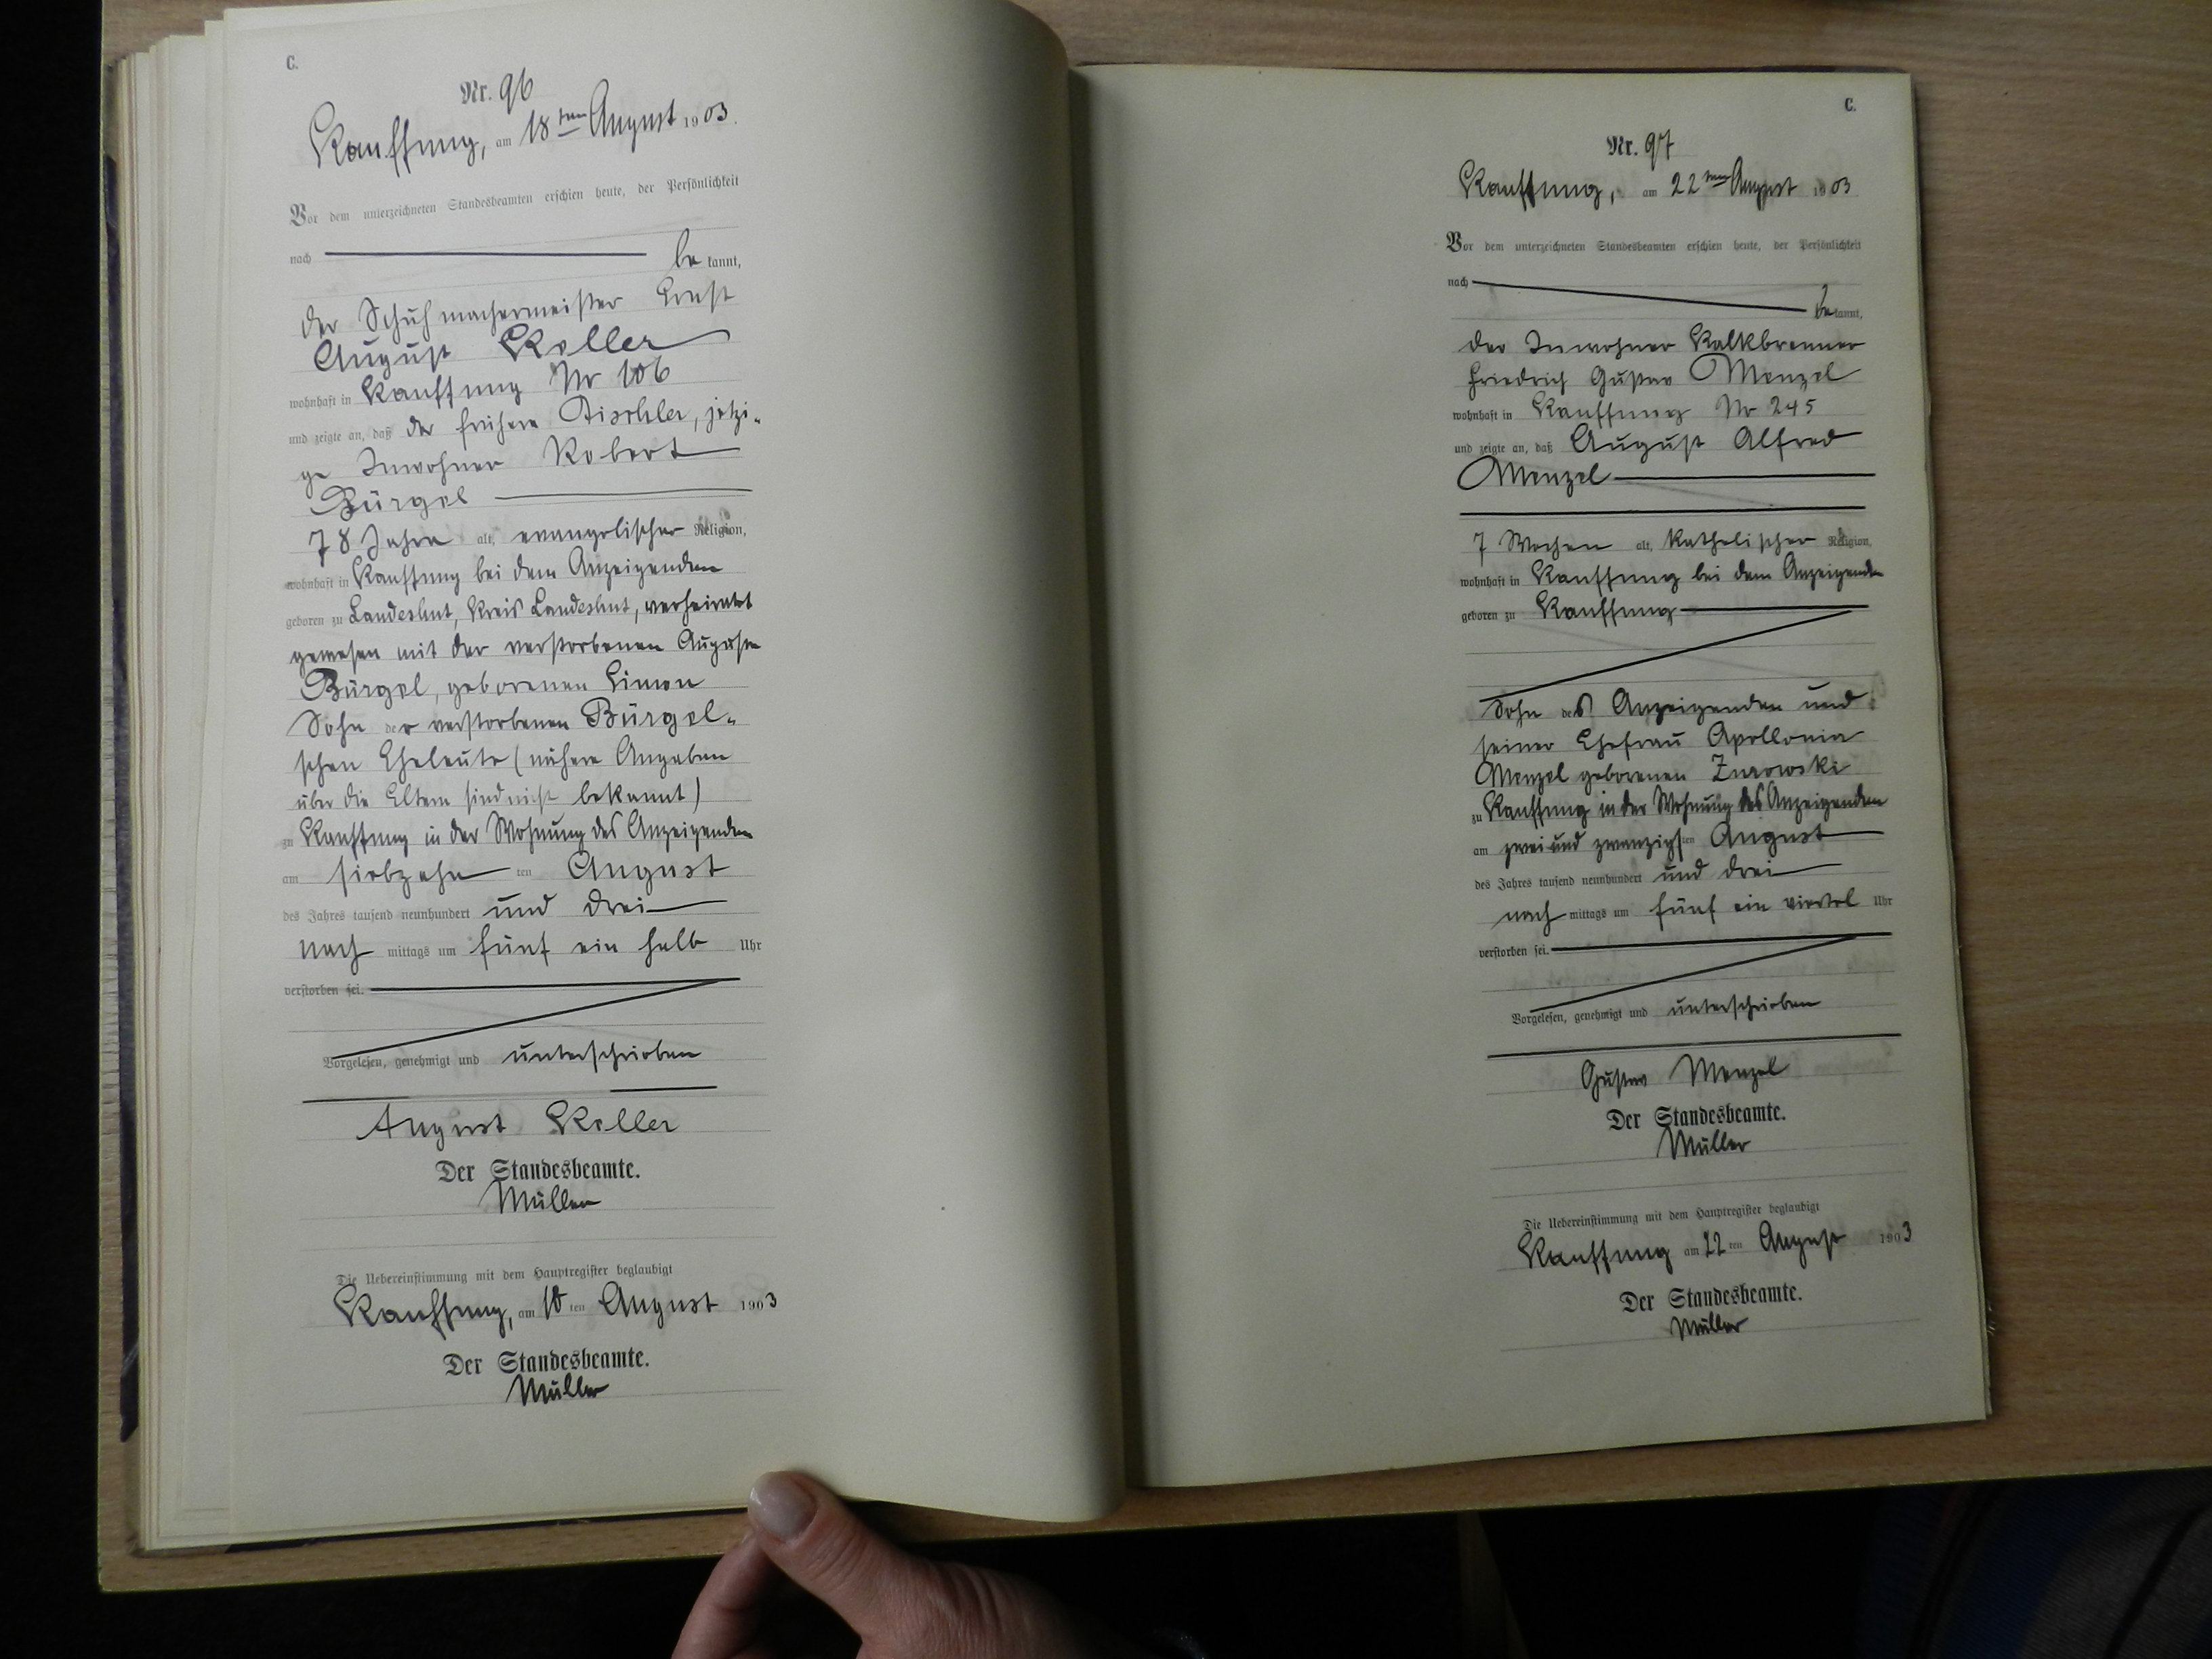 C.
Nr. 96
Kauffung, am 18ten August 1903.
Vor dem unterzeichneten Standesbeamten erschien heute, der Persönlichkeit
nach be kannt,
der Schuhmachermeister Ernst
August Koller
wohnhaft in Kauffung Nr 106
und zeigte an, daß der frühere Tischler, jetzi-
ge Inwohner Robert
Bürgel
78 Jahre alt, evangelischer Religion,
wohnhaft in Kauffung bei dem Anzeigenden
geboren zu Landeshut, Kreis Landeshut, verheiratet
gewesen mit der verstorbenen Auguste
Bürgel, geborenen Simon
Sohn der verstorbenen Bürgel-
schen Eheleute (nähere Angaben
über die Eltern sind nicht bekannt)
zu Kauffung in der Wohnung des Anzeigenden
am siebzehn ten August
des Jahres tausend neunhundert und drei
nach mittags um fünf ein halb Uhr
verstorben sei.
Vorgelesen, genehmigt und unterschrieben
August Koller
Der Standesbeamte.
Müller
Die Uebereinstimmung mit dem Hauptregister beglaubigt
Kauffung, am 18 ten August 1903
Der Standesbeamte.
Müller
C.
Nr. 97
Kauffung, am 22ten August 1903
Vor dem unterzeichneten Standesbeamten erschien heute, der Persönlichkeit
nach be kannt,
der Inwohner Kalkbrenner
Friedrich Gustav Menzel
wohnhaft in Kauffung Nr 245
und zeigte an, daß August Alfred
Menzel
7 Wochen alt, katholischer Religion,
wohnhaft in Kauffung bei dem Anzeigenden
geboren zu Kauffung
Sohn des Anzeigenden und
seiner Ehefrau Apollonia
Menzel geborenen Zurowski
zu Kauffung in der Wohnung des Anzeigenden
am zwei und zwanzigsten August
des Jahres tausend neunhundert und drei
nach mittags um fünf ein viertel Uhr
verstorben sei.
Vorgelesen, genehmigt und unterschrieben
Gustav Menzel
Der Standesbeamte.
Müller
Die Uebereinstimmung mit dem Hauptregister beglaubigt
Kauffung am 22 ten August 1903
Der Standesbeamte.
Müller